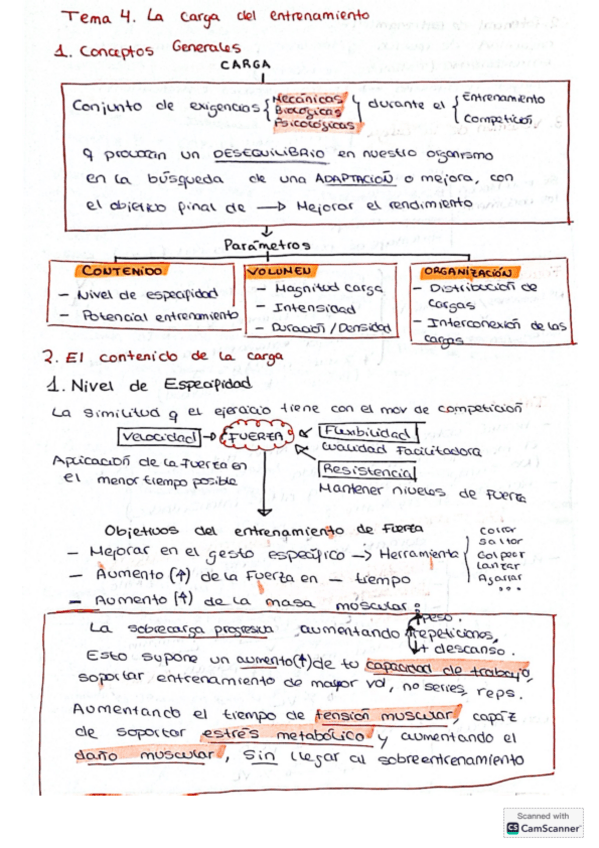 Tema 4. La carga del entrenamiento
1. Conceptos Generales
CARGA
Conjunto de exigencias { Mecánicas Biológicas Psicológicas } y durante el { Entrenamiento Competición
q provocan un DESEQUILIBRIO en nuestro organismo
en la búsqueda de una ADAPTACIÓN o mejora, con
el objetivo final de → Mejorar el rendimiento
Parámetros
CONTENIDO
- Nivel de especifidad
- Potencial entrenamiento
VOLUMEN
- Magnitud carga
- Intensidad
- Duración / Densidad
ORGANIZACIÓN
- Distribución de
cargas
- Interconexión de las
cargas
2. El contenido de la carga
1. Nivel de Especifidad
La similitud q el ejercicio tiene con el mov de competición
Velocidad → FUERZA ← Flexibilidad
Cualidad Facilitadora
Aplicación de la fuerza en
el menor tiempo posible
Resistencia
Mantener niveles de fuerza
Objetivos del entrenamiento de fuerza
- Mejorar en el gesto específico → Herramienta { Correr Saltar Golpear Lanzar Agarrar ...
- Aumento (↑) de la Fuerza en - tiempo
- Aumento (↑) de la masa muscular:
La sobrecarga progresiva aumentando ↑peso. ↑repeticiones, ↓+ descanso.
Esto supone un aumento(↑) de tu capacidad de trabajo,
soportar entrenamiento de mayor vol, no series, reps.
Aumentando el tiempo de tensión muscular, capaz
de soportar estrés metabólico y aumentando el
daño muscular, sin llegar al sobreentrenamiento
Scanned with
CS CamScanner